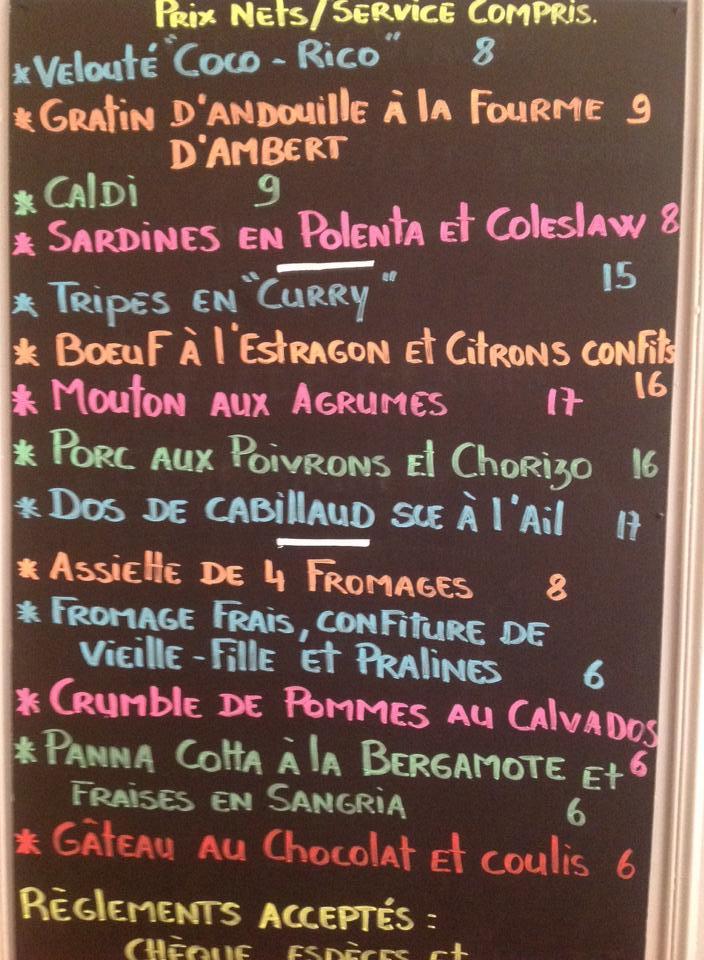 Prix Nets/Service Compris.
* Velouté "Coco - Rico" 8
* Gratin d'Andouille à la Fourme 9
d'Ambert
* Caldi 9
* Sardines en Polenta et Coleslaw 8
* Tripes en "Curry" 15
* Boeuf à l'Estragon et Citrons confits
16
* Mouton aux Agrumes 17
* Porc aux Poivrons et Chorizo 16
* Dos de cabillaud sce à l'Ail 17
* Assiette de 4 Fromages 8
* Fromage Frais, confiture de
Vieille-Fille et Pralines 6
* Crumble de Pommes au Calvados
6
* Panna Cotta à la Bergamote et
Fraises en Sangria 6
* Gâteau au Chocolat et coulis 6
Règlements acceptés :
Chèque, espèces et